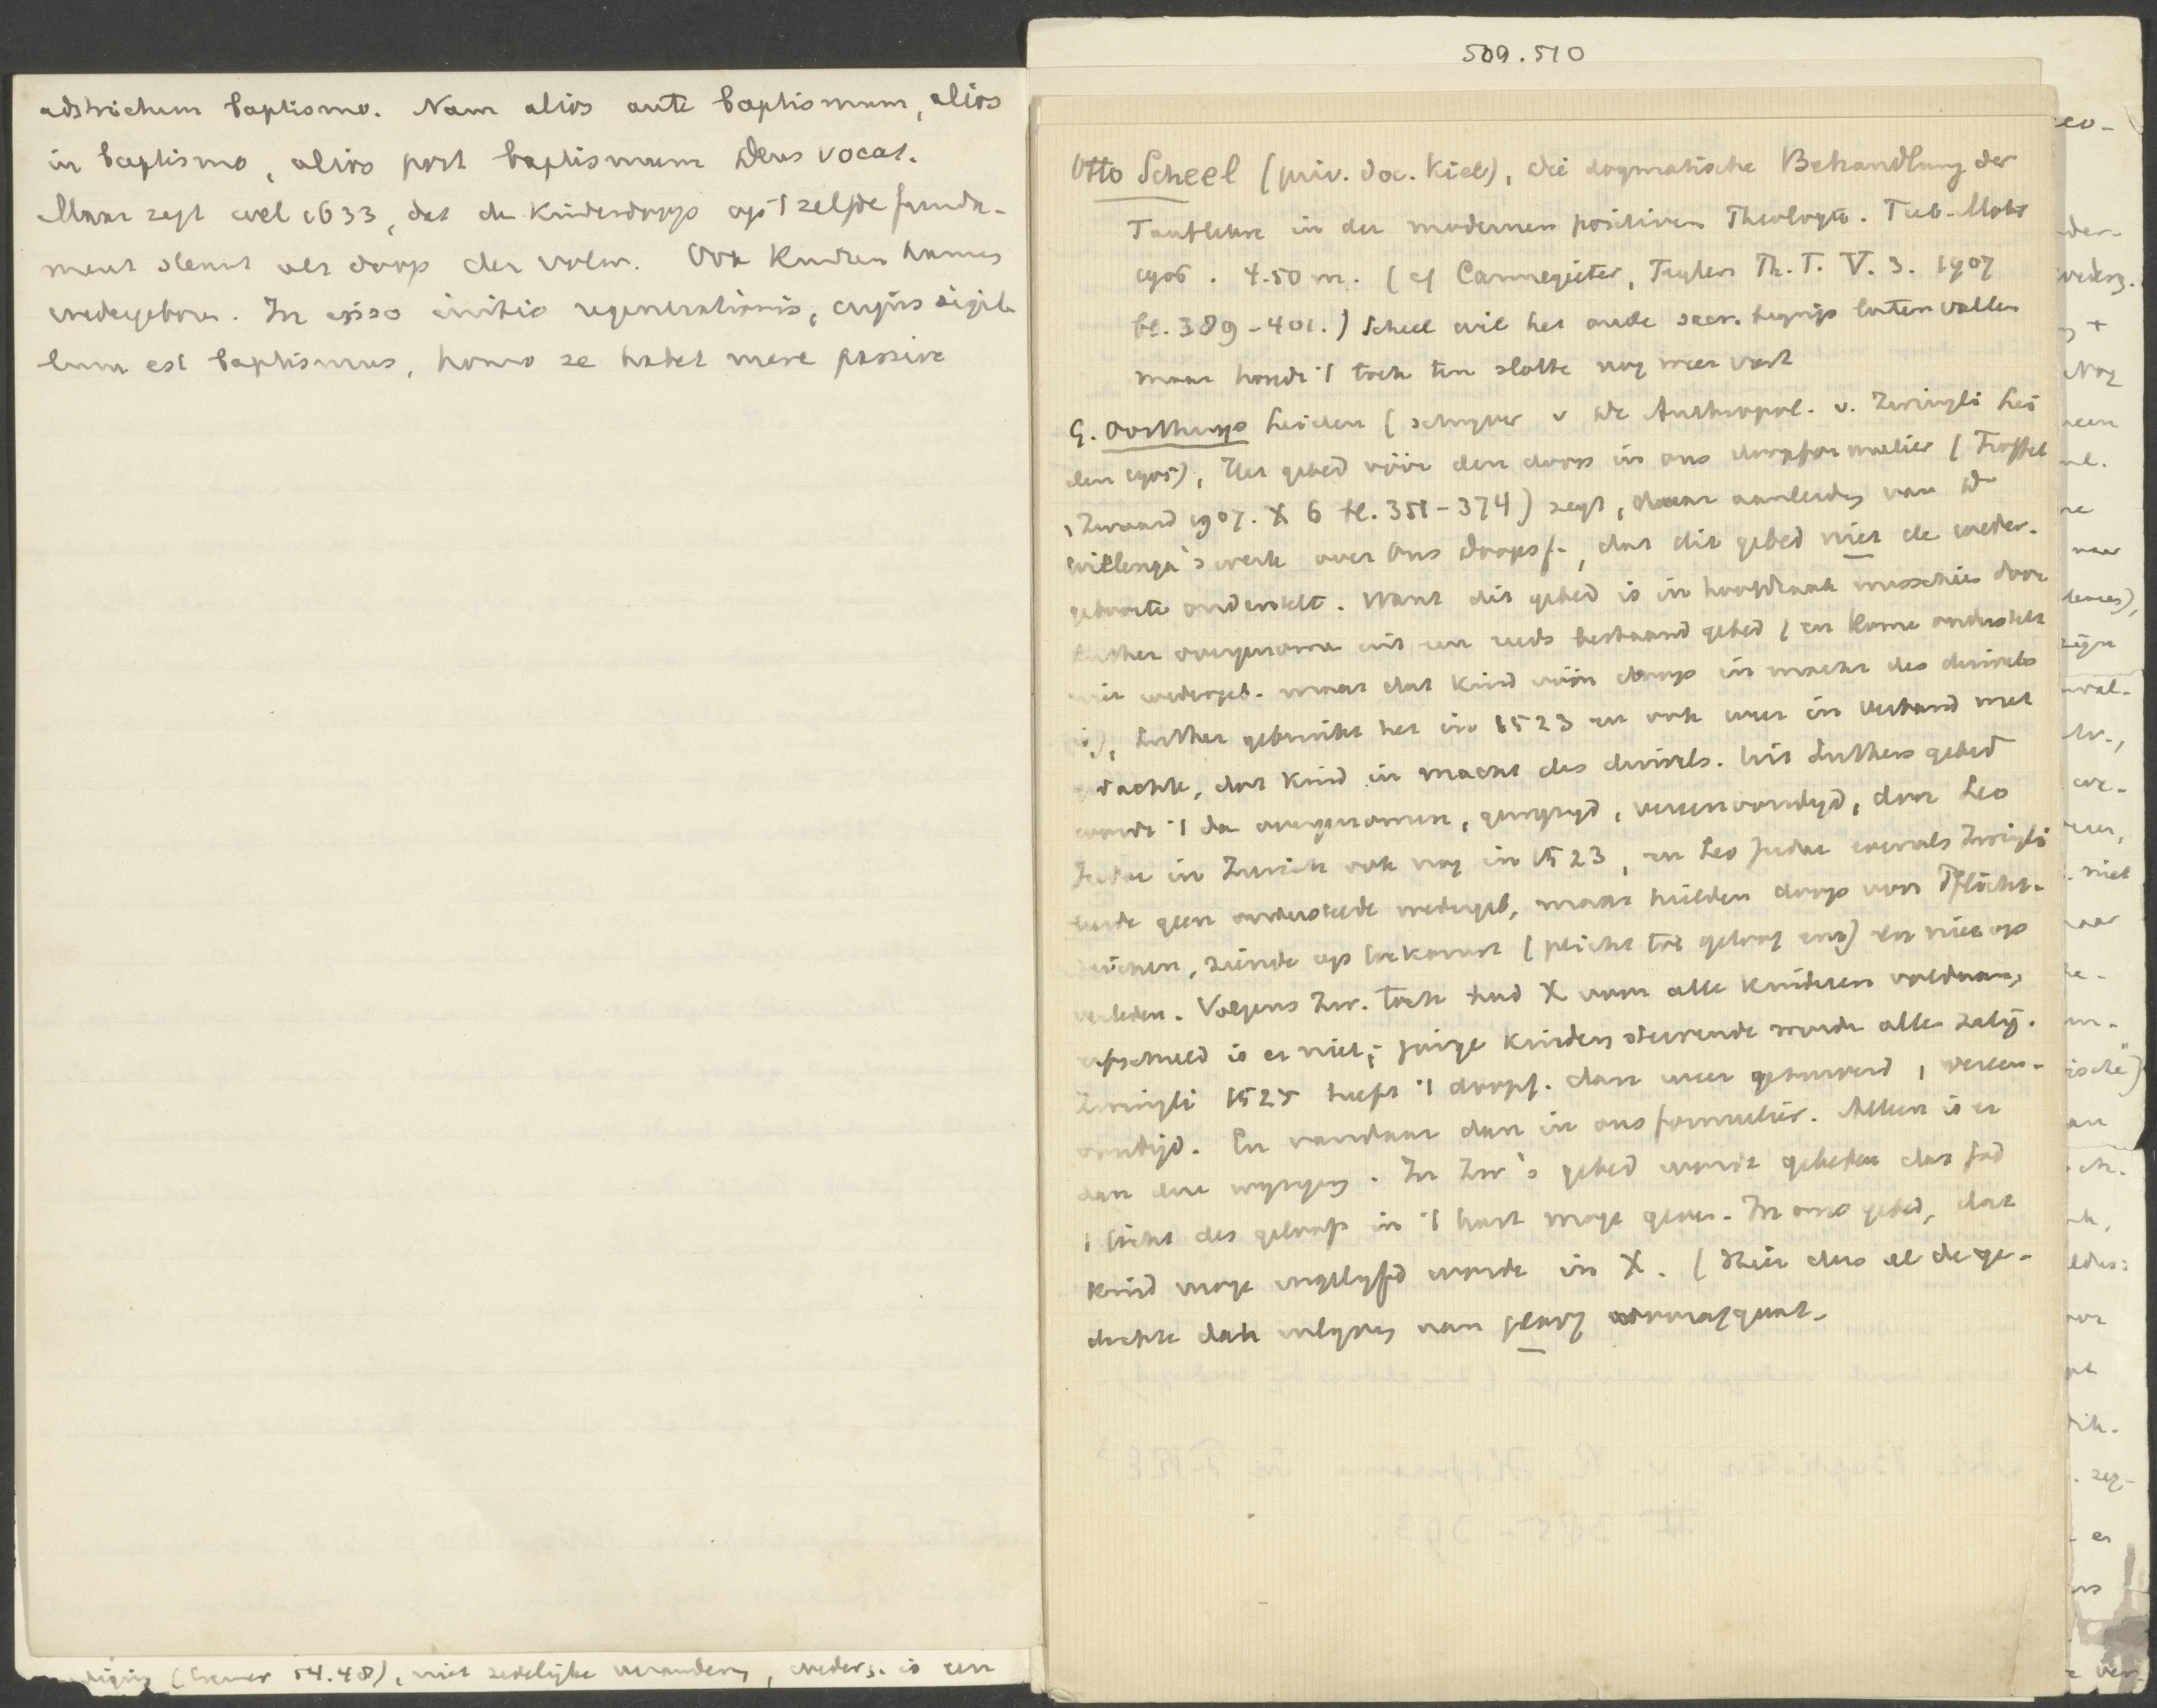 adstrictum baptismo. Nam alios ante baptismum, alios
in baptismo, alios post baptismum Deus vocat.
Maar zegt wel 1633, dat de kinderdoop op 't zelfde funda-
ment steunt als doop der volw. Ook kunnen
wedergeboren. In ipso initio regenerationis, cujus sigil-
lum est baptismus, homo se habet mere passive
(Cremer 54.48), niet zedelijke verandering, wederg. is een
509.510
Otto Scheel (priv. doc. Kiel), die dogmatische Behandlung der
Tauflehre in der modernen positiven Theologie. Tüb. Mohr
1906. 4.50 m. (cf Cannegieter, Teylers Th. T. V. 3. 1907
bl. 389-401.) Scheel wil het oude sacr. begrip laten vallen
maar houdt 't toch ten slotte nog weer vast
G. Oorthuys Leiden (schrijver v de Anthropol. v. Zwingli Lei
den 1905), Het gebed vóór den doop in ons doopformulier (Troffel
, Zwaard 1907. X 6 bl. 351-374) zegt, naar aanleiding van Dr
Willenga's werk over Ons Doopsf., dat dit gebed niet de weder-
geboorte onderstelt. Want dit gebed is in hoofdzaak misschien door
Luther overgenomen uit een reeds bestaand gebed (en Rome onderstelt
niet wedergeb. maar dat kind vóór doop in macht des duivels
is), Luther gebruikt het in 1523 en ook weer in verband met
gedachte, dat kind in macht des duivels. Uit Luthers gebed
wordt 't dan overgenomen, gewijzigd, vereenvoudigd, door Leo
Judae in Zurich ook nog in 1523, en Leo Judae evenals Zwingli
leerde geen onderstelde wedergeb, maar hielden doop voor Pflicht-
zeichen, ziende op toekomst (plicht tot geloof enz) en niet op
verleden. Volgens Zw. toch had X voor alle kinderen voldaan,
erfschuld is er niet; jonge kinderen stervende worden alle zalig.
Zwingli 1525 heeft 't doopf. dan weer gebruikt, vereen-
voudigd. En vandaar dan in ons formulier. Alleen is er
dan deze wijziging. In Zw's gebed wordt gebeden dat God
't licht des geloofs in 't hart moge geven. In ons gebed, dat
kind moge ingelijfd worde in X. (Hier dus al de ge-
dachte dat inlijving aan geloof voorafgaat.